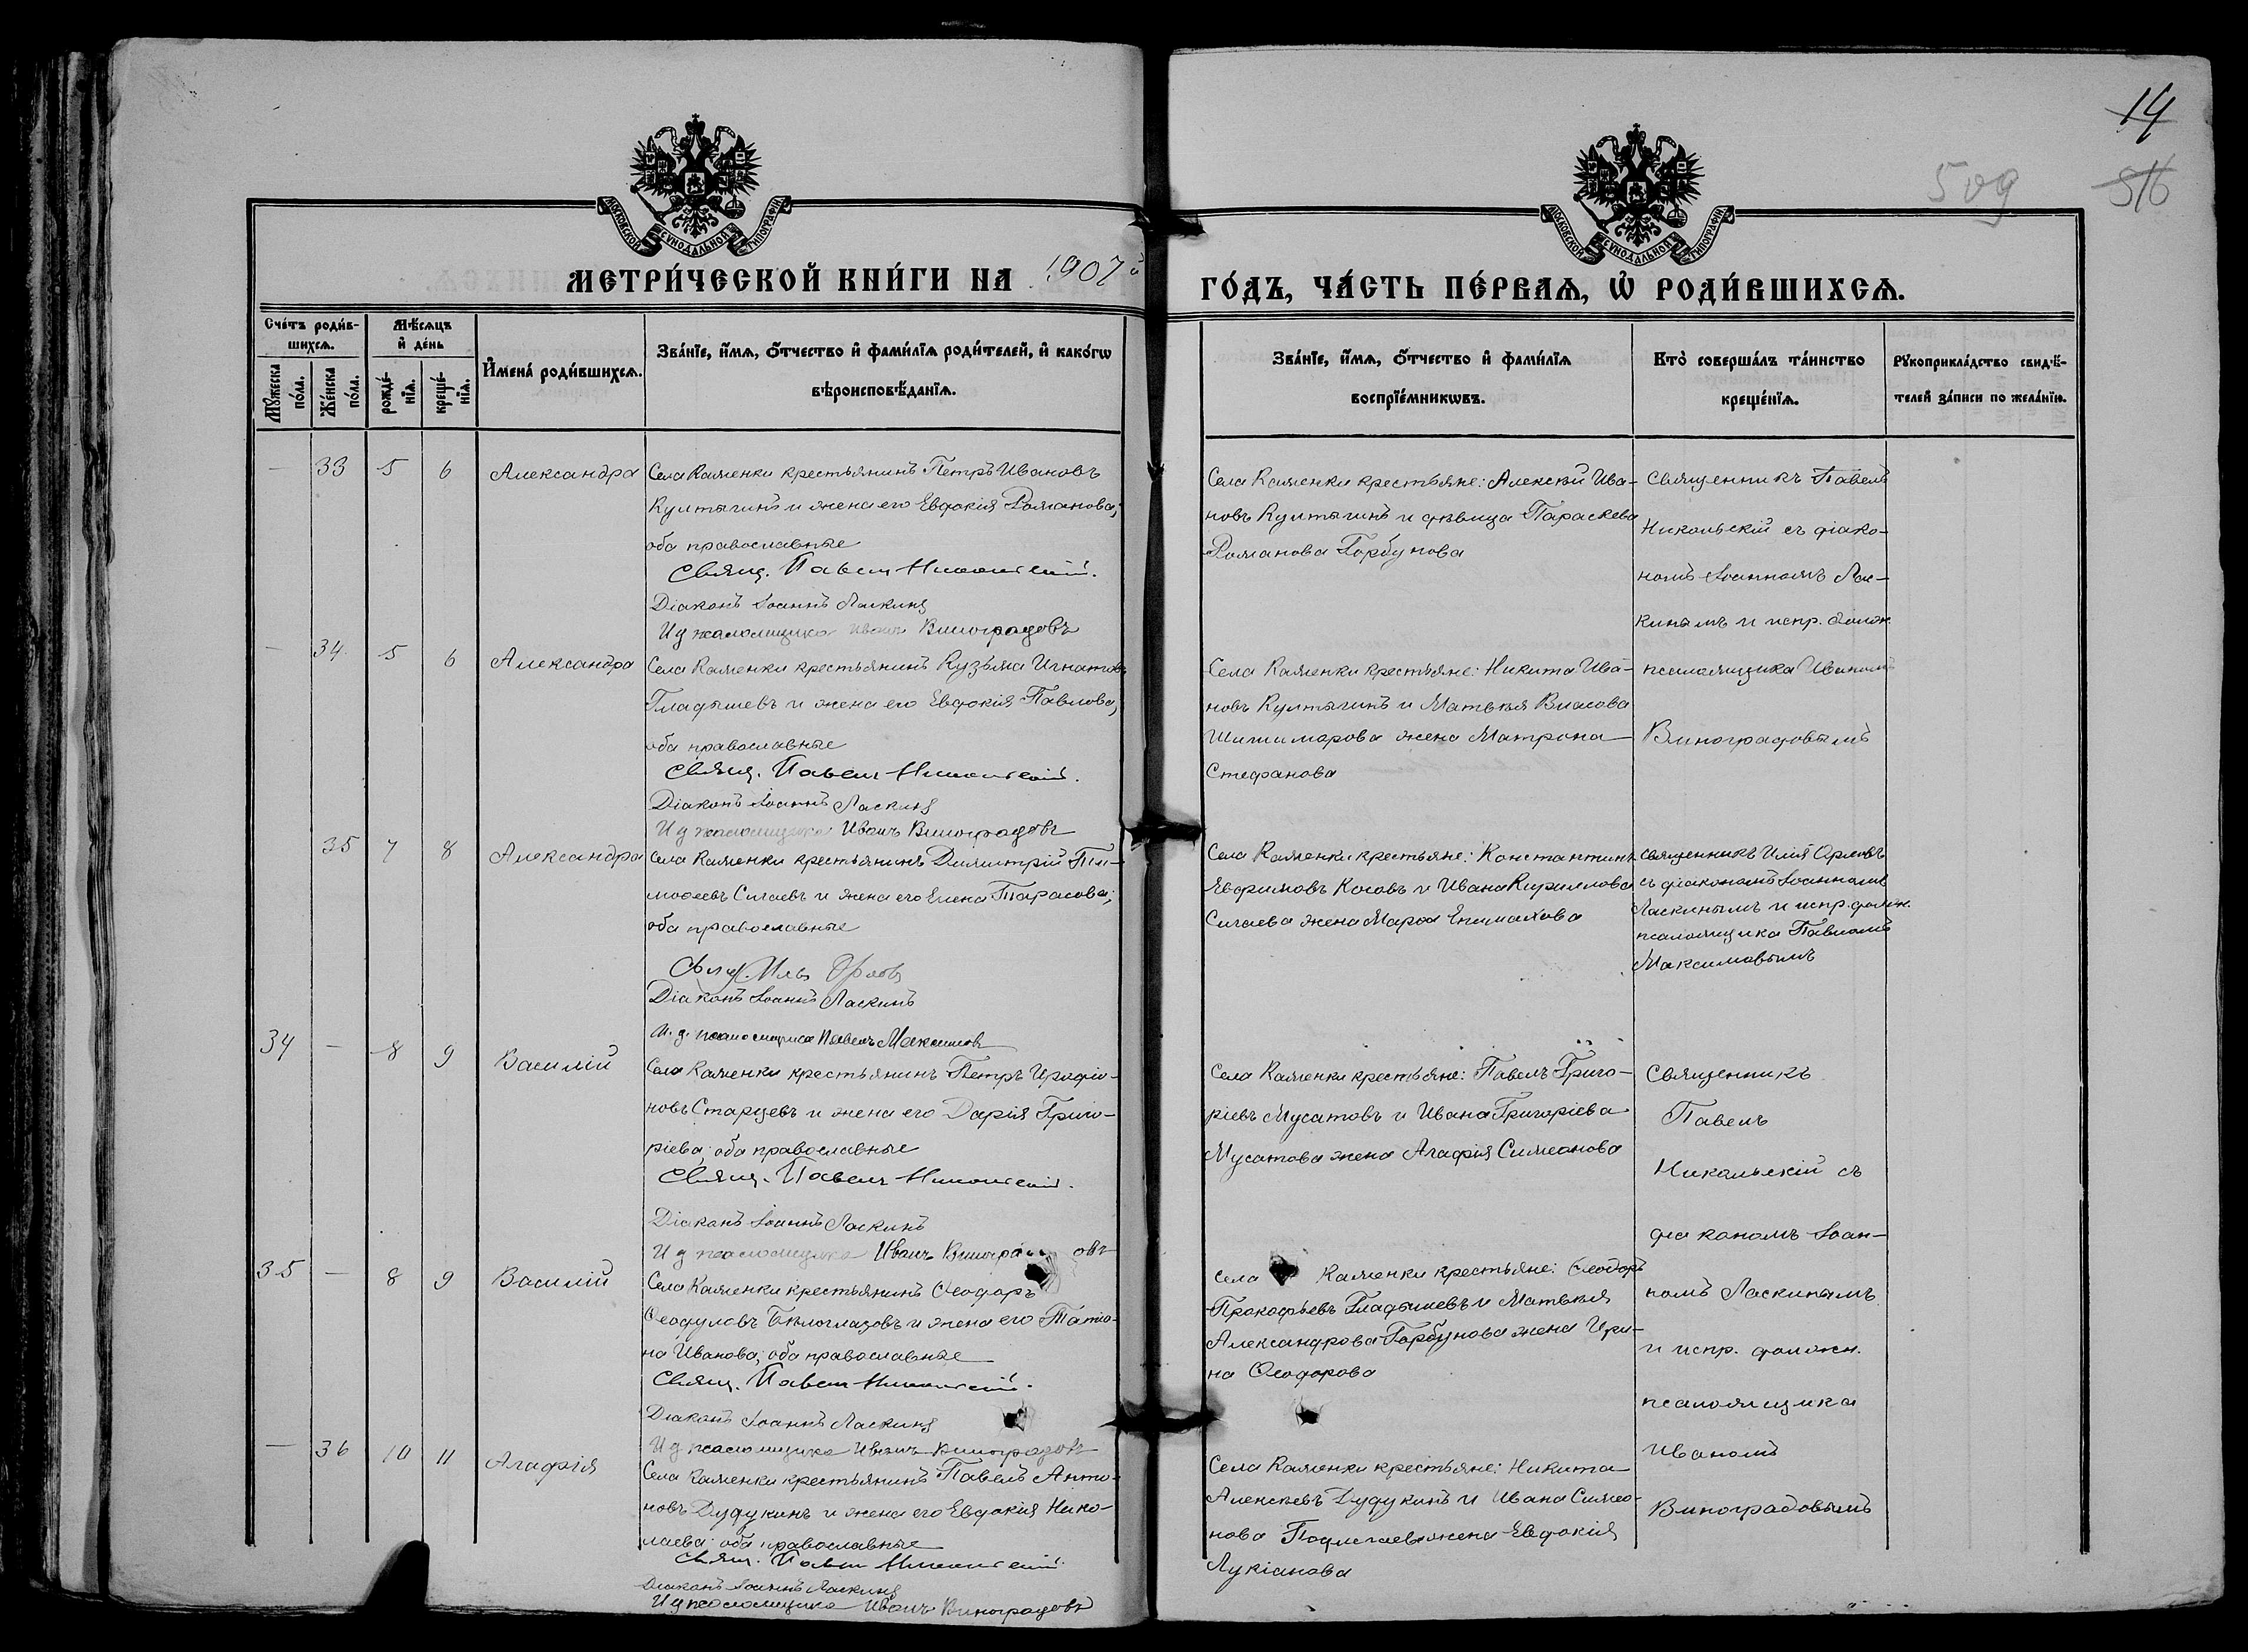 14
509
516
МОСКОВСКОЙ СѴНОДАЛЬНОЙ ТИПОГРАФІИ
МОСКОВСКОЙ СѴНОДАЛЬНОЙ ТИПОГРАФІИ
МЕТРИ́ЧЕСКОЙ КНИ́ГИ НА 1907й
ГО́ДЪ, ЧА́СТЬ ПЕ́РВАѦ, Ѡ҆ РОДИ́ВШИХСѦ.
Сче́тъ роди́в-
шихсѧ.
Мꙋ́жеска по́ла.
Же́нска по́ла.
Мѣ́сѧцъ
и҆ де́нь
рожде́-
нїѧ.
креще́-
нїѧ.
И҆мена̀ роди́вшихсѧ.
Зва́нїе, и҆́мѧ, ѻ҆́тчество и҆ фами́лїѧ роди́телей, и҆ како́гѡ
вѣроисповѣ́данїѧ.
Зва́нїе, и҆́мѧ, ѻ҆́тчество и҆ фами́лїѧ
воспрїе́мникѡвъ.
Кто̀ соверша́лъ та́инство
креще́нїѧ.
Рꙋкоприкла́дство свидѣ́-
телей за́писи по жела́нїю.
— 33 5 6 Александра
Села Каменки крестьянинъ Петръ Ивановъ
Култыгинъ и жена его Евдокія Романова;
оба православные
Свящ. Павелъ Никольскій.
Діаконъ Іоаннъ Ласкинъ
И д псаломщика Иванъ Виноградовъ
Села Каменки крестьяне: Алексѣй Ива-
новъ Култыгинъ и дѣвица Параскева
Романова Горбунова
Священникъ Павелъ
Никольскій съ діако-
номъ Іоанномъ Лас-
кинымъ и испр. долж
псаломщика Иваномъ
Виноградовымъ
— 34 5 6 Александра
Села Каменки крестьянинъ Кузьма Игнатовъ
Гладышевъ и жена его Евдокія Павлова;
оба православные
Свящ. Павелъ Никольскій.
Діаконъ Іоаннъ Ласкинъ
И д псаломщика Иванъ Виноградовъ
Села Каменки крестьяне: Никита Ива-
новъ Култыгинъ и Матвѣя Власова
жена Матрона
Стефанова
35 7 8 Александра
Села Каменки крестьянинъ Димитрій Ти-
моѳеевъ Сигаевъ и жена его Елена Тарасова;
оба православные
Свящ. Илья Орловъ
Діаконъ Іоаннъ Ласкинъ
И. д. псаломщика Павелъ Максимовъ
Села Каменки крестьяне: Константинъ
Евфимовъ Косовъ и Ивана Кириллова
Сигаева жена Марѳа Епимахова
Священникъ Илія Орловъ
съ діакономъ Іоанномъ
Ласкинымъ и испр. должн.
псаломщика Павломъ
Максимовымъ
34 — 8 9 Василій
Села Каменки крестьянинъ Петръ Иродіо-
новъ Старцевъ и жена его Дарія Григо-
ріева; оба православные
Свящ. Павелъ Никольскій.
Діаконъ Іоаннъ Ласкинъ
И д псаломщика Иванъ Виноградовъ
Села Каменки крестьяне: Павелъ Григо-
ріевъ Мусатовъ и Ивана Григоріева
Мусатова жена Агафія Симеонова
Священникъ
Павелъ
Никольскій съ
діакономъ Іоан-
номъ Ласкинымъ
и испр. должн.
псаломщика
Иваномъ
Виноградовымъ
35 — 8 9 Василій
Села Каменки крестьянинъ Ѳеодоръ
Ѳеодуловъ Бѣлоглазовъ и жена его Татіа-
на Иванова; оба православные
Свящ. Павелъ Никольскій.
Діаконъ Іоаннъ Ласкинъ
И д псаломщика Иванъ Виноградовъ
Села Каменки крестьяне: Ѳеодоръ
Прокофьевъ Гладышевъ и Матвѣя
Александрова Горбунова жена Ири-
на Ѳеодорова
— 36 10 11 Агафія
Села Каменки крестьянинъ Павелъ Анто-
новъ Дудукинъ и жена его Евдокія Нико-
лаева; оба православные
Свящ. Павелъ Никольскій.
Діаконъ Іоаннъ Ласкинъ
И д псаломщика Иванъ Виноградовъ
Села Каменки крестьяне: Никита
Алексѣевъ Дудукинъ и Ивана Симео-
нова жена Евдокія
Лукіанова